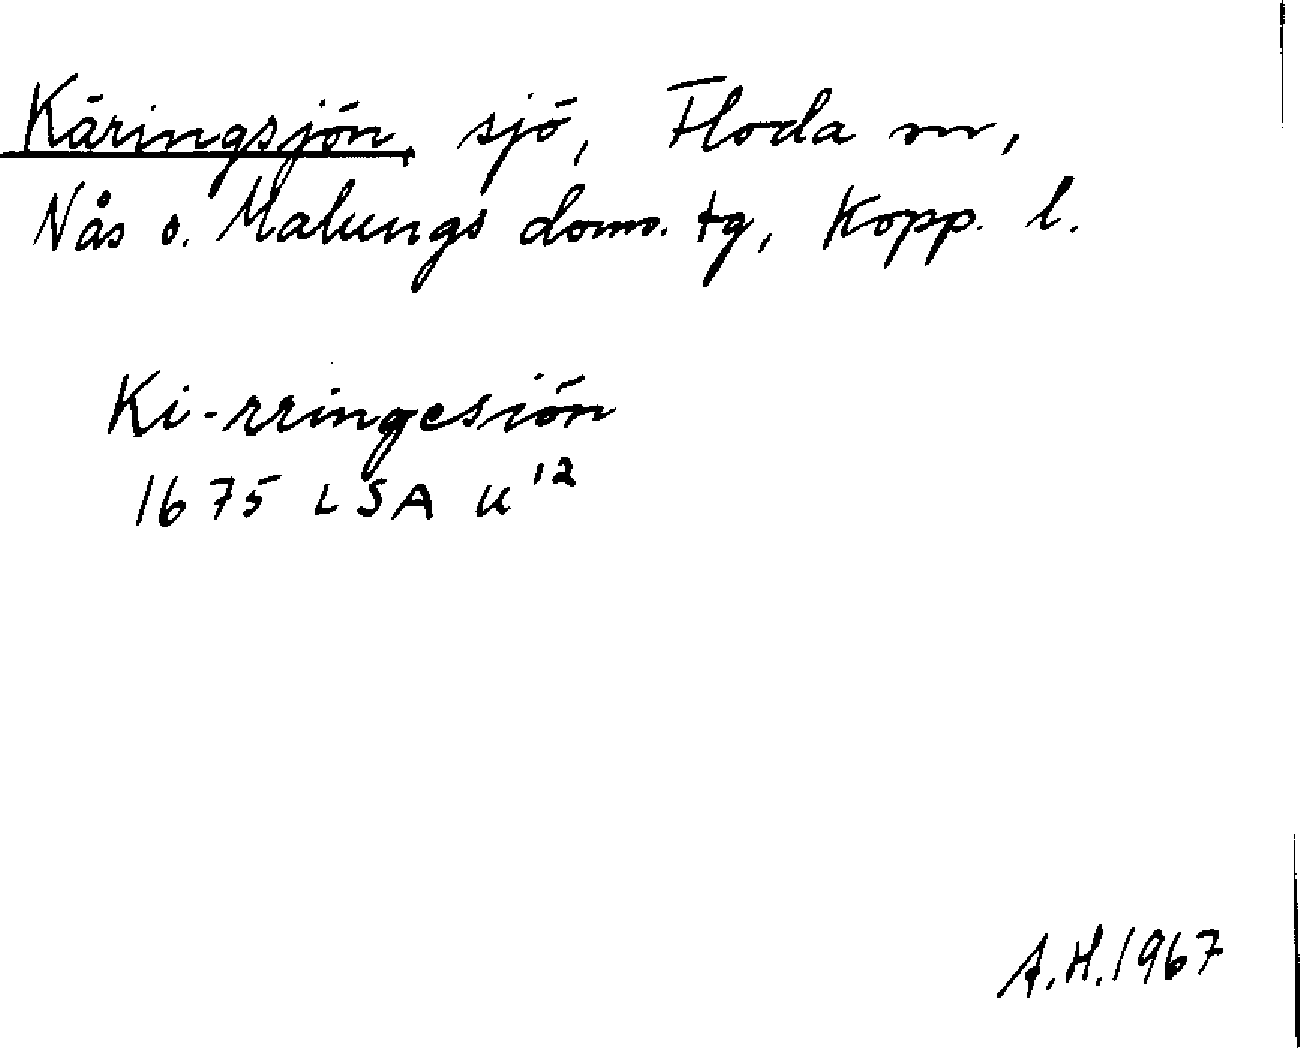 Käringsjön, sjö, Floda sn,
Nås o. Malungs doms. tg, Kopp. l.
Ki-rringesiön
1675 LSA U¹²
A.H. 1967